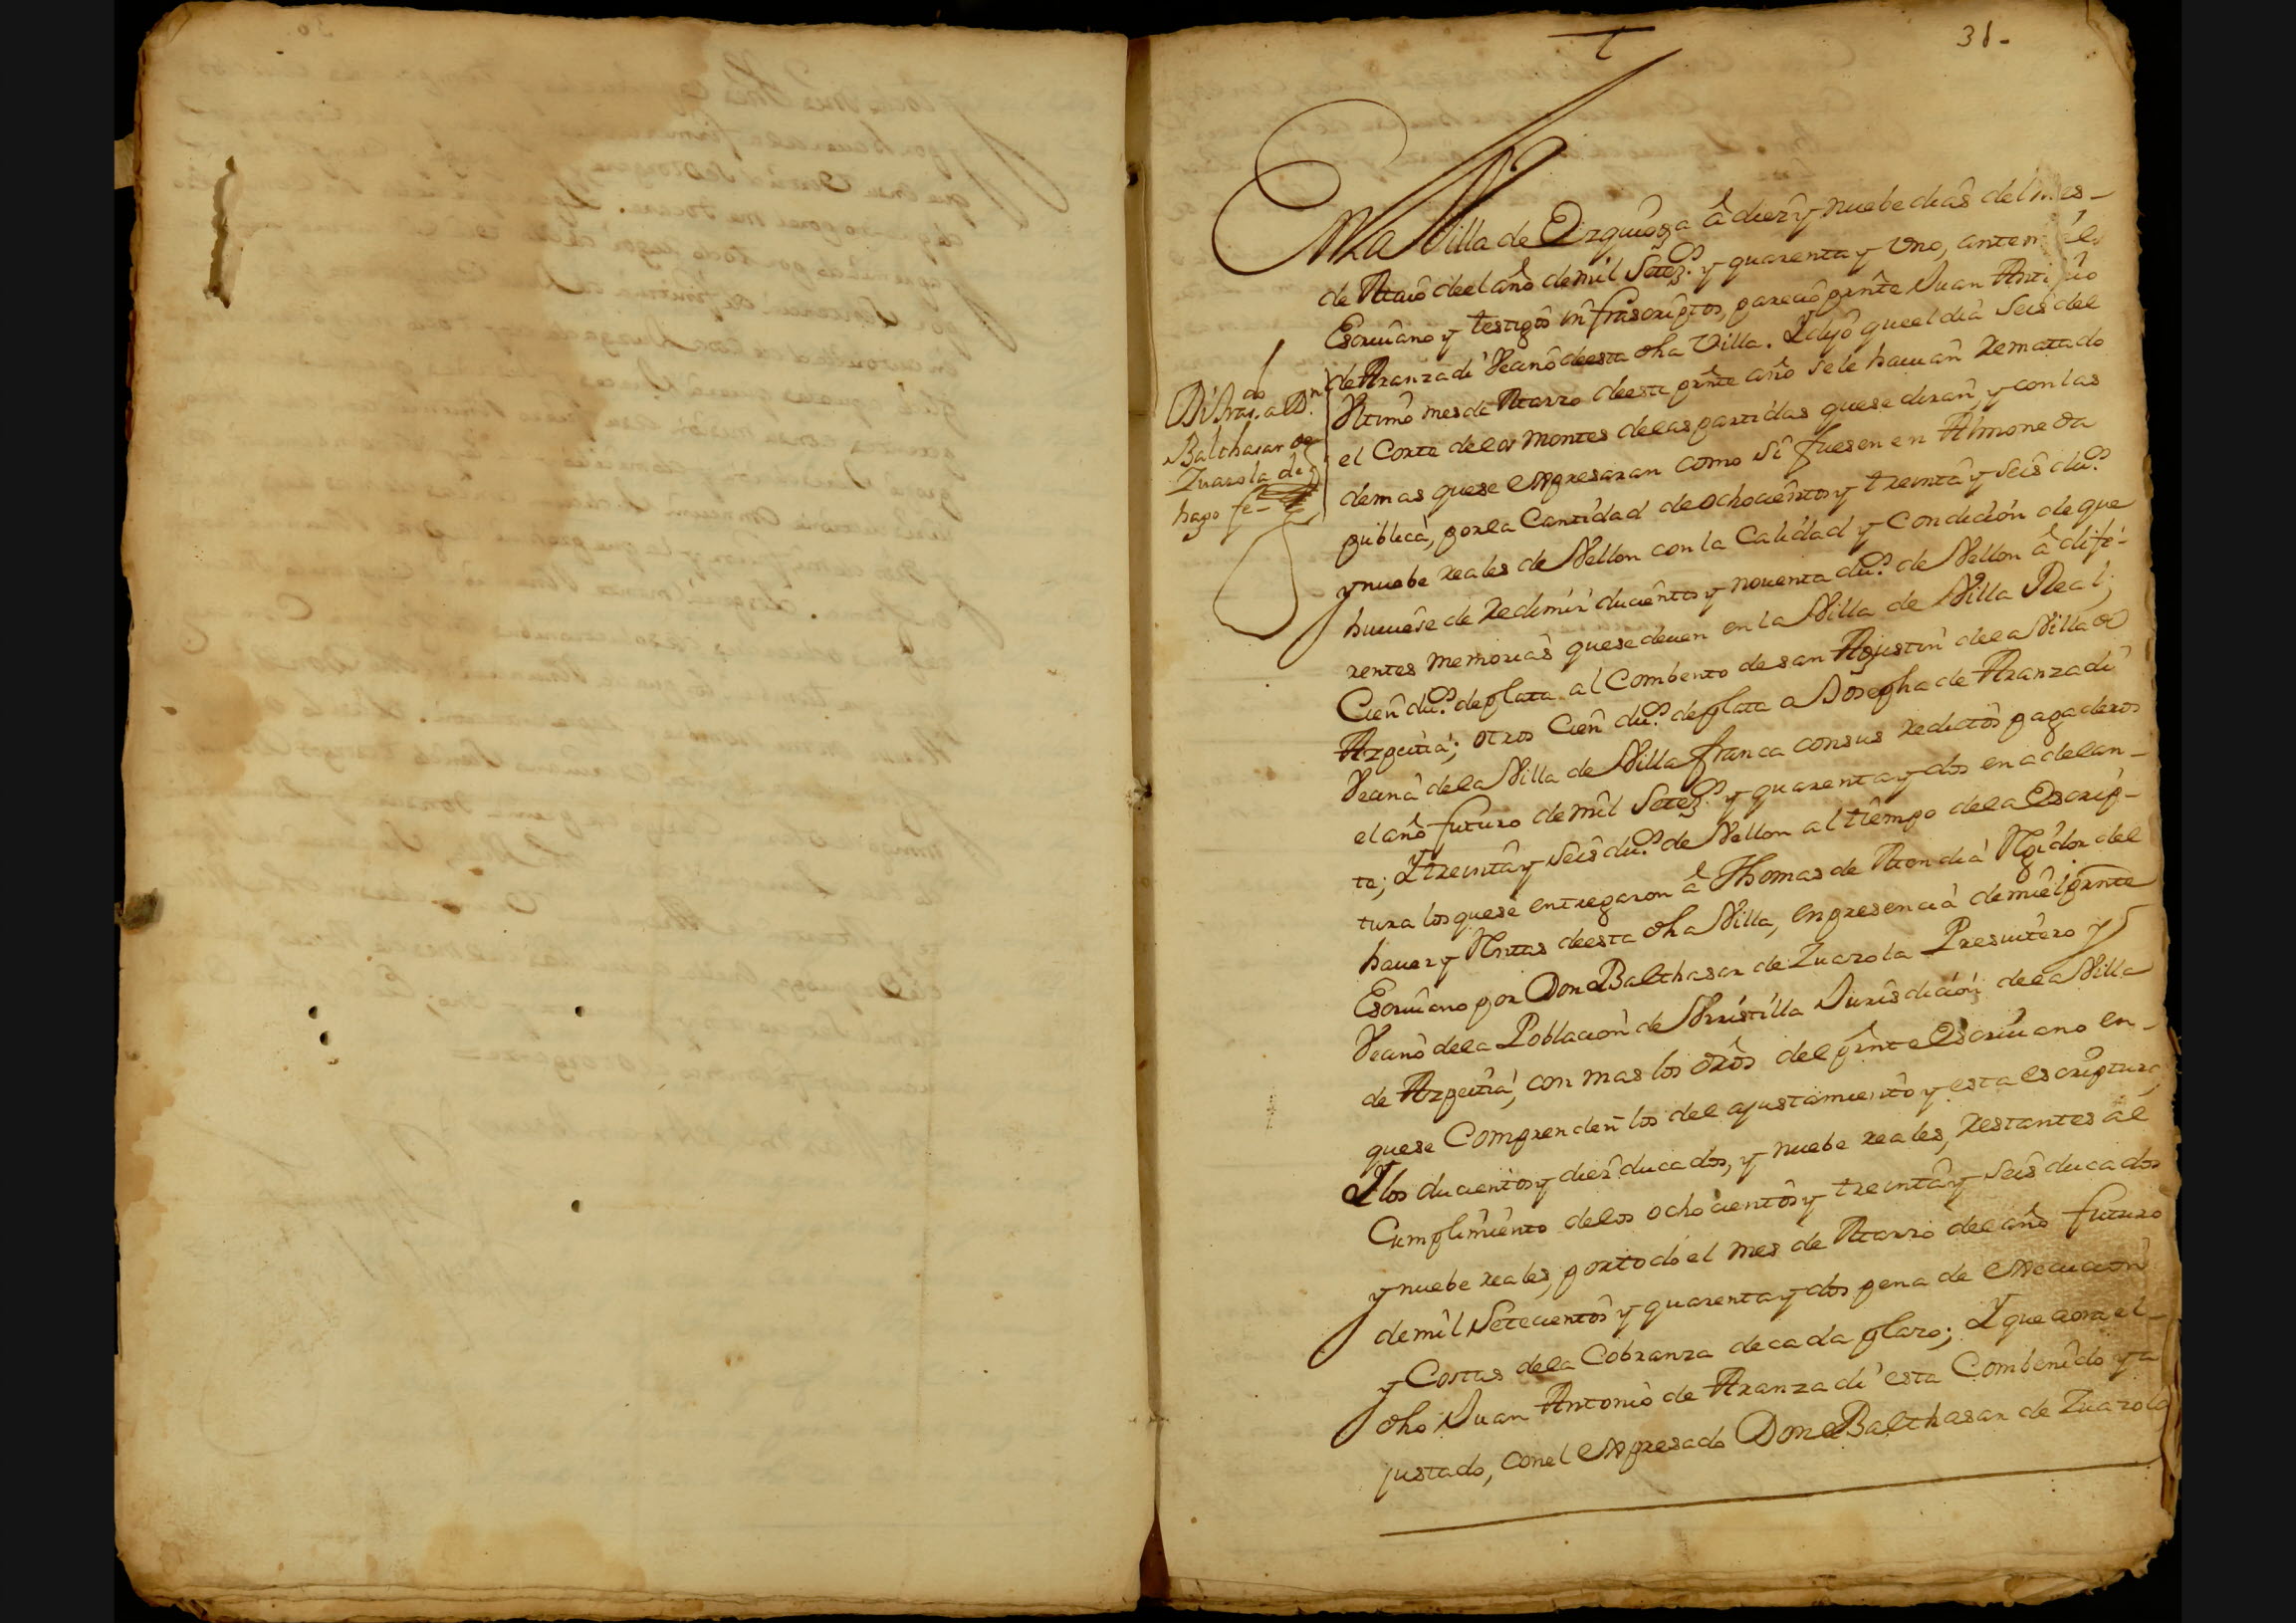 31-
En la Villa de Ezquioga â diez y nuebe dias del mes -
de Maio del año de mil Setez.s y quarenta y uno, ante mi el
Escriuano y testigos infrascriptos, pareció pnte Juan Antonio
de Aranzadi Vecino de esta dha Villa. Y dijo que el dia seis del
Vltimo mes de Marzo de este pnte año se le hauian Rematado
el Corte de los Montes de las partidas que se diran, y con las
demas que se expresaran como si fuesen en Almoneda
publica, por la Cantidad de ochocientos y treinta y seis du.s
y nuebe reales de Vellon con la Calidad y Condicion de que
huuiese de Redimir ducientos y nouenta du.s de Vellon â dife-
rentes memorias que se deuen en la Villa de Villa Real;
Cien du.s de plata al Combento de san Agustin de la Villa de
Azpeitia; otros Cien du.s de plata a Josepha de Aranzadi
Vecina de la Villa de Villafranca con sus reditos pagaderos
el año futuro de mil Setez.s y quarenta y dos en adelan-
te; Y treinta y seis du.s de Vellon al tiempo de la Escrip-
tura los que se entregaron â Thomas de Mendia Rejidor del
hauer y Rentas de esta dha Villa, en presencia de mi el pnte
Escriuano por Don Balthasar de Zuazola Presuitero y
Vecino de la Poblacion de Vrrestilla Jurisdicion de la Villa
de Azpeitia, con mas los dros del pnte Escriuano en-
que se Comprenden los del ajustamiento y esta escriptura
Y los ducientos y diez ducados, y nuebe reales, restantes al
Cumplimiento de los ochocientos y treinta y seis ducados
y nuebe reales, por todo el mes de Marzo del año futuro
de mil Setecientos y quarenta y dos pena de execucion
y Costas de la Cobranza de cada plazo; Y que aora el -
dho Juan Antonio de Aranzadi esta Combenido y a
justado, con el expresado Don Balthasar de Zuazola
Di tras.do a Dn
Balthasar de
Zuazola de q
hago fe -